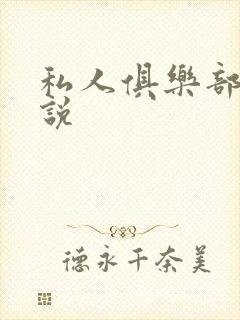 私人俱樂部
說
德永千奈美